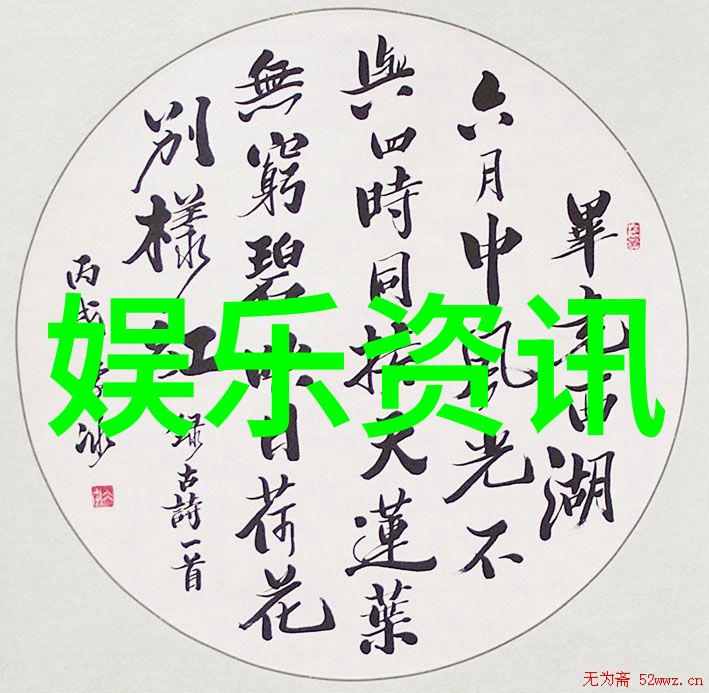 畢竟西湖
六月中風光不
與四時同接天蓮葉
無窮碧映日荷花
別樣紅 錄古詩一首
丙戌 冰
娱乐资讯
无为斋 52wwz.cn